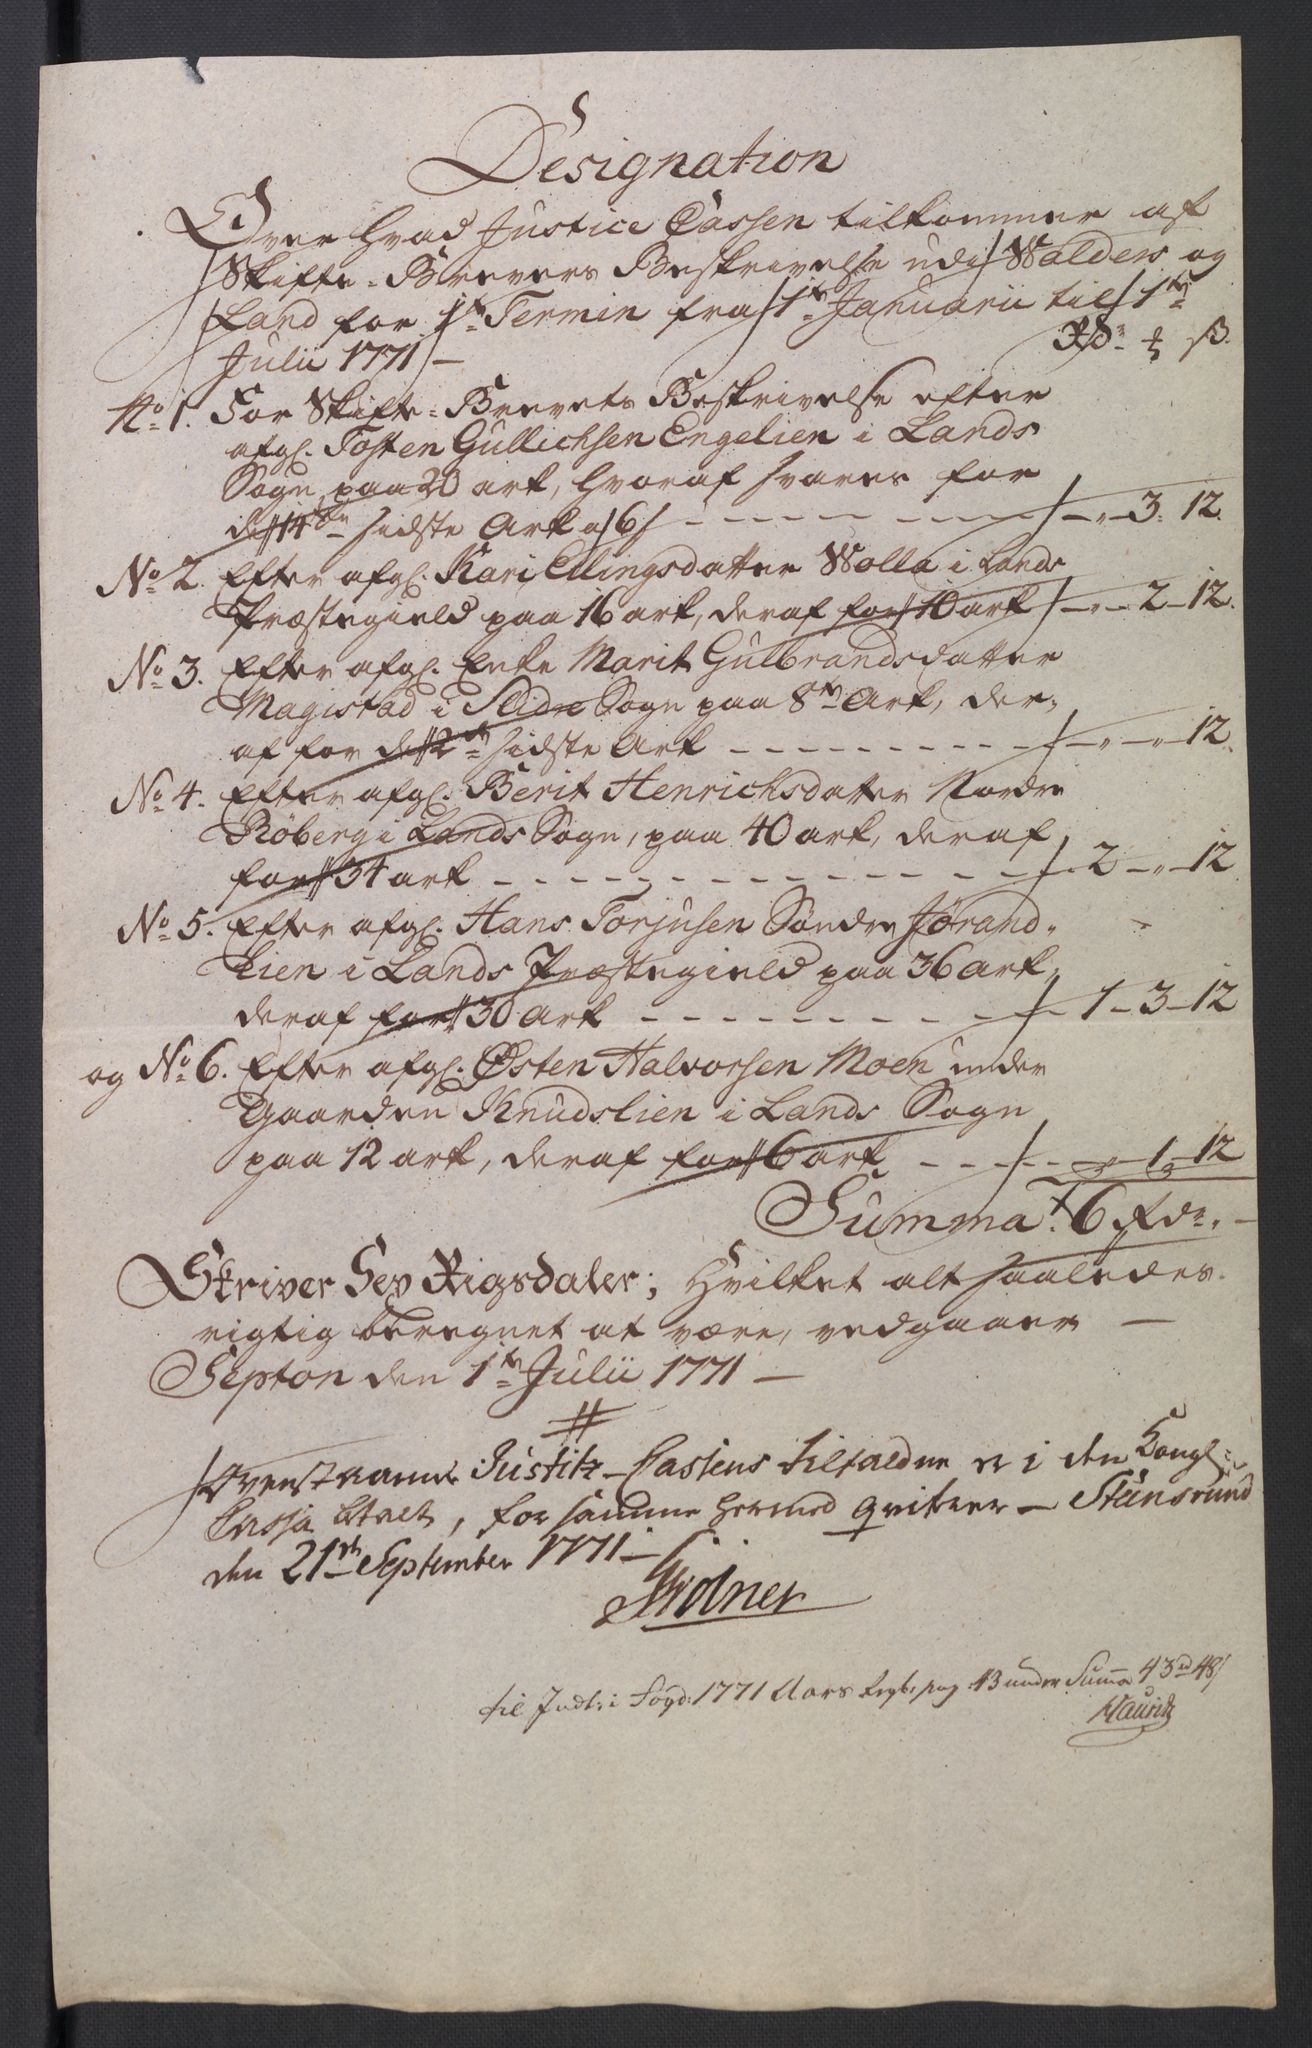 Designation
Over hvad Justice Cassen tilkommer af
Skifte-Brevers Beskrivelse udi Walders og
Land for 1te Termin fra 1te Januarii til 1te
Julii 1771 —
Rdr. ß.
No 1. For Skifte-Brevets Beskrivelse efter
afgl. Tosten Gullichsen Engelien i Lands
Sogn, paa 20 ark, hvoraf svares for
de 14ten sidste Ark a 6 s — 3. 12.
No 2. Efter afgl. Kari Ellingsdatter Wolla i Lands
Præstegield paa 16 ark, deraf for 10 ark — 2 — 12.
No 3. Efter afgl. Enke Marit Gulbrandsdatter
Magistad i Slidre Sogn paa 8te Ark, der-
af for de 2de sidste Ark — 12.
No 4. Efter afgl. Berit Henrichsdatter Nordre
Röberg i Lands Sogn, paa 40 ark, deraf
for 34 ark — 2 — " — 12
No 5. Efter afgl. Hans Torjusen Söndre Jörand-
Lien i Lands Præstegield paa 36 Ark,
deraf for 30 Ark — 1 — 3 — 12
og No 6. Efter afgl. Østen Halvorsen Moen under
Gaarden Knudslien i Lands Sogn
paa 12 ark, deraf for 6 ark — 1 — 12
Summa 6 Rdr. —
Skriver Sex Rigsdaler; hvilket alt saaledes
rigtig beregnet at være, vedgaaer —
Septon den 1te Julii 1771 —
Ovenstaaende Justitz-Cassens tilfaldne er i den Kongl:
Cassa , for samme hermed qviterer — Stensrund
den 21de September 1771 —
Wolner
til Indt: i Fogd: 1771 Aars Regb: pag: 13 under Summa 43 rd 48 s
Mauritz